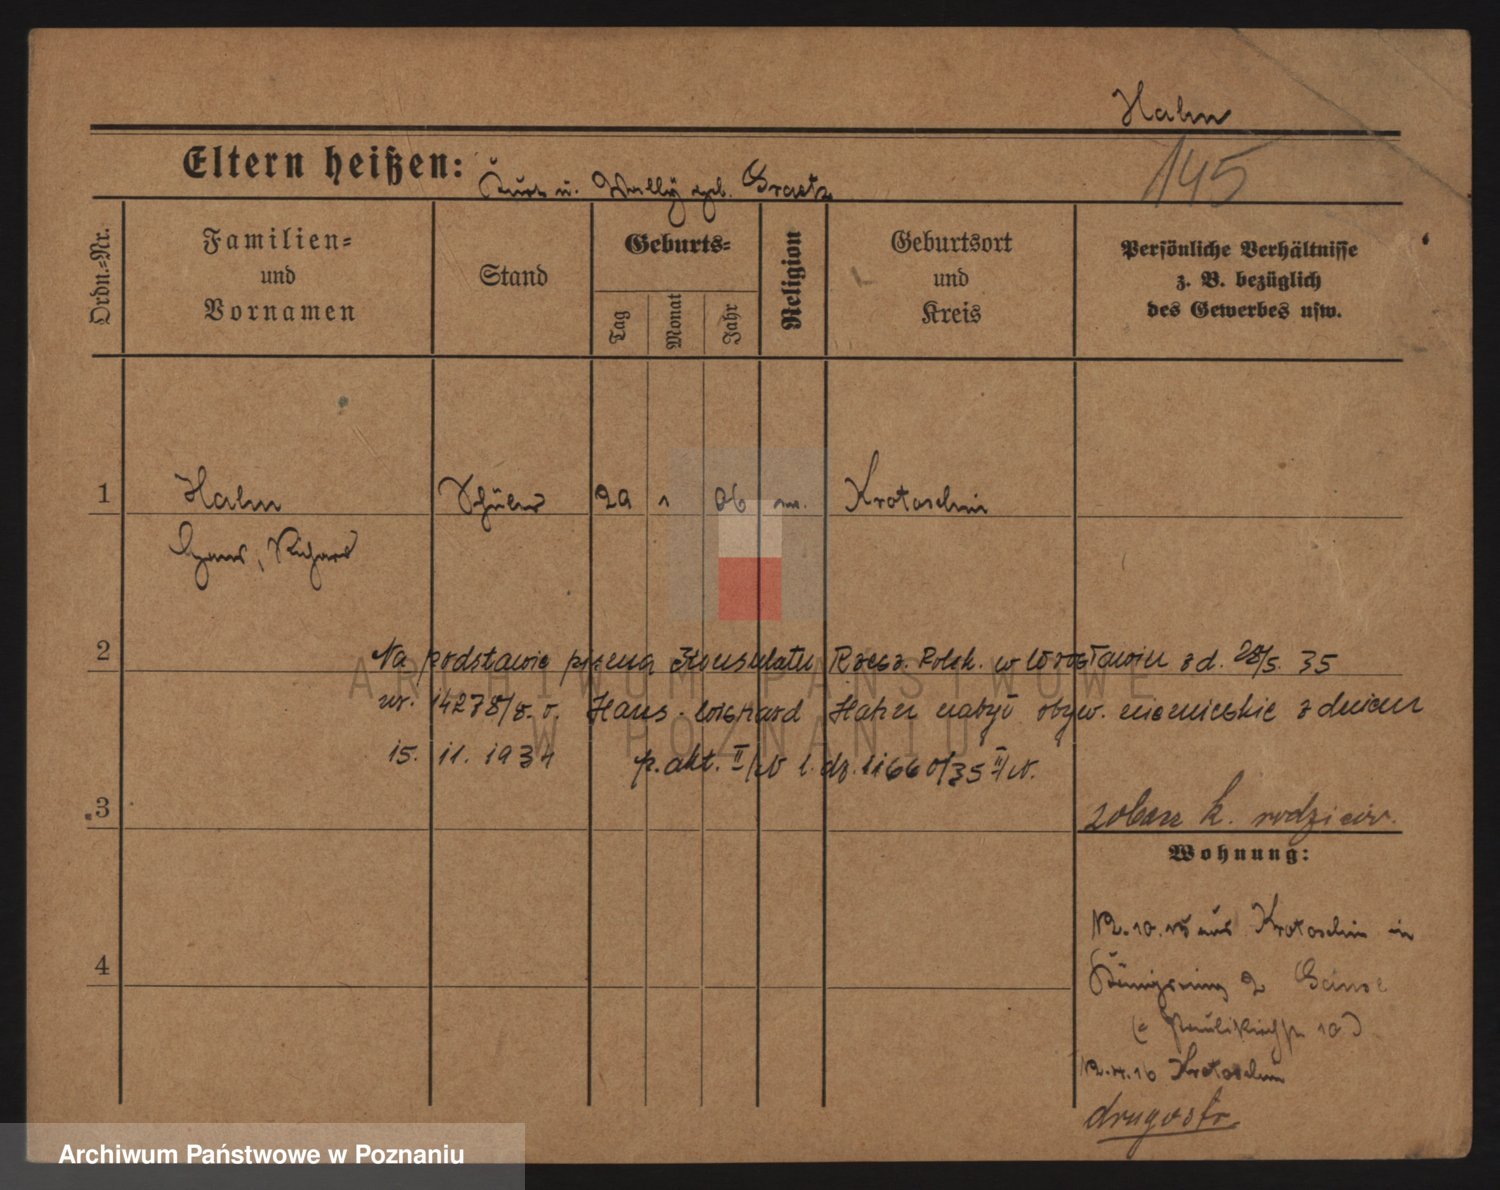 Hahn
145
Eltern heißen: Kurt u. Wally geb. Graetz
Ordn.-Nr.
Familien-
und
Vornamen
Stand
Geburts-
Tag
Monat
Jahr
Religion
Geburtsort
und
Kreis
Persönliche Verhältnisse
z. B. bezüglich
des Gewerbes usw.
1 Hahn Schüler 29 1 06 Krotoschin
Hans, Richard
2 Na podstawie pisma Konsulatu Rzesz. Polsk. w Wrocławiu z d. 28/5. 35
nr. 14278/ Hans Hahn nabył obyw. niemieckie z dniem
15. 11. 1934 p. akt. II/ l. dz. 11660/35 II/
3
zobacz k. rodziców.
Wohnung:
4
10. 15 aus Krotoschin in
Königsring 2
(= Paulikirchstr 10)
4. 16 Krotoschin
drugostr.
ARCHIWUM PAŃSTWOWE
W POZNANIU
Archiwum Państwowe w Poznaniu